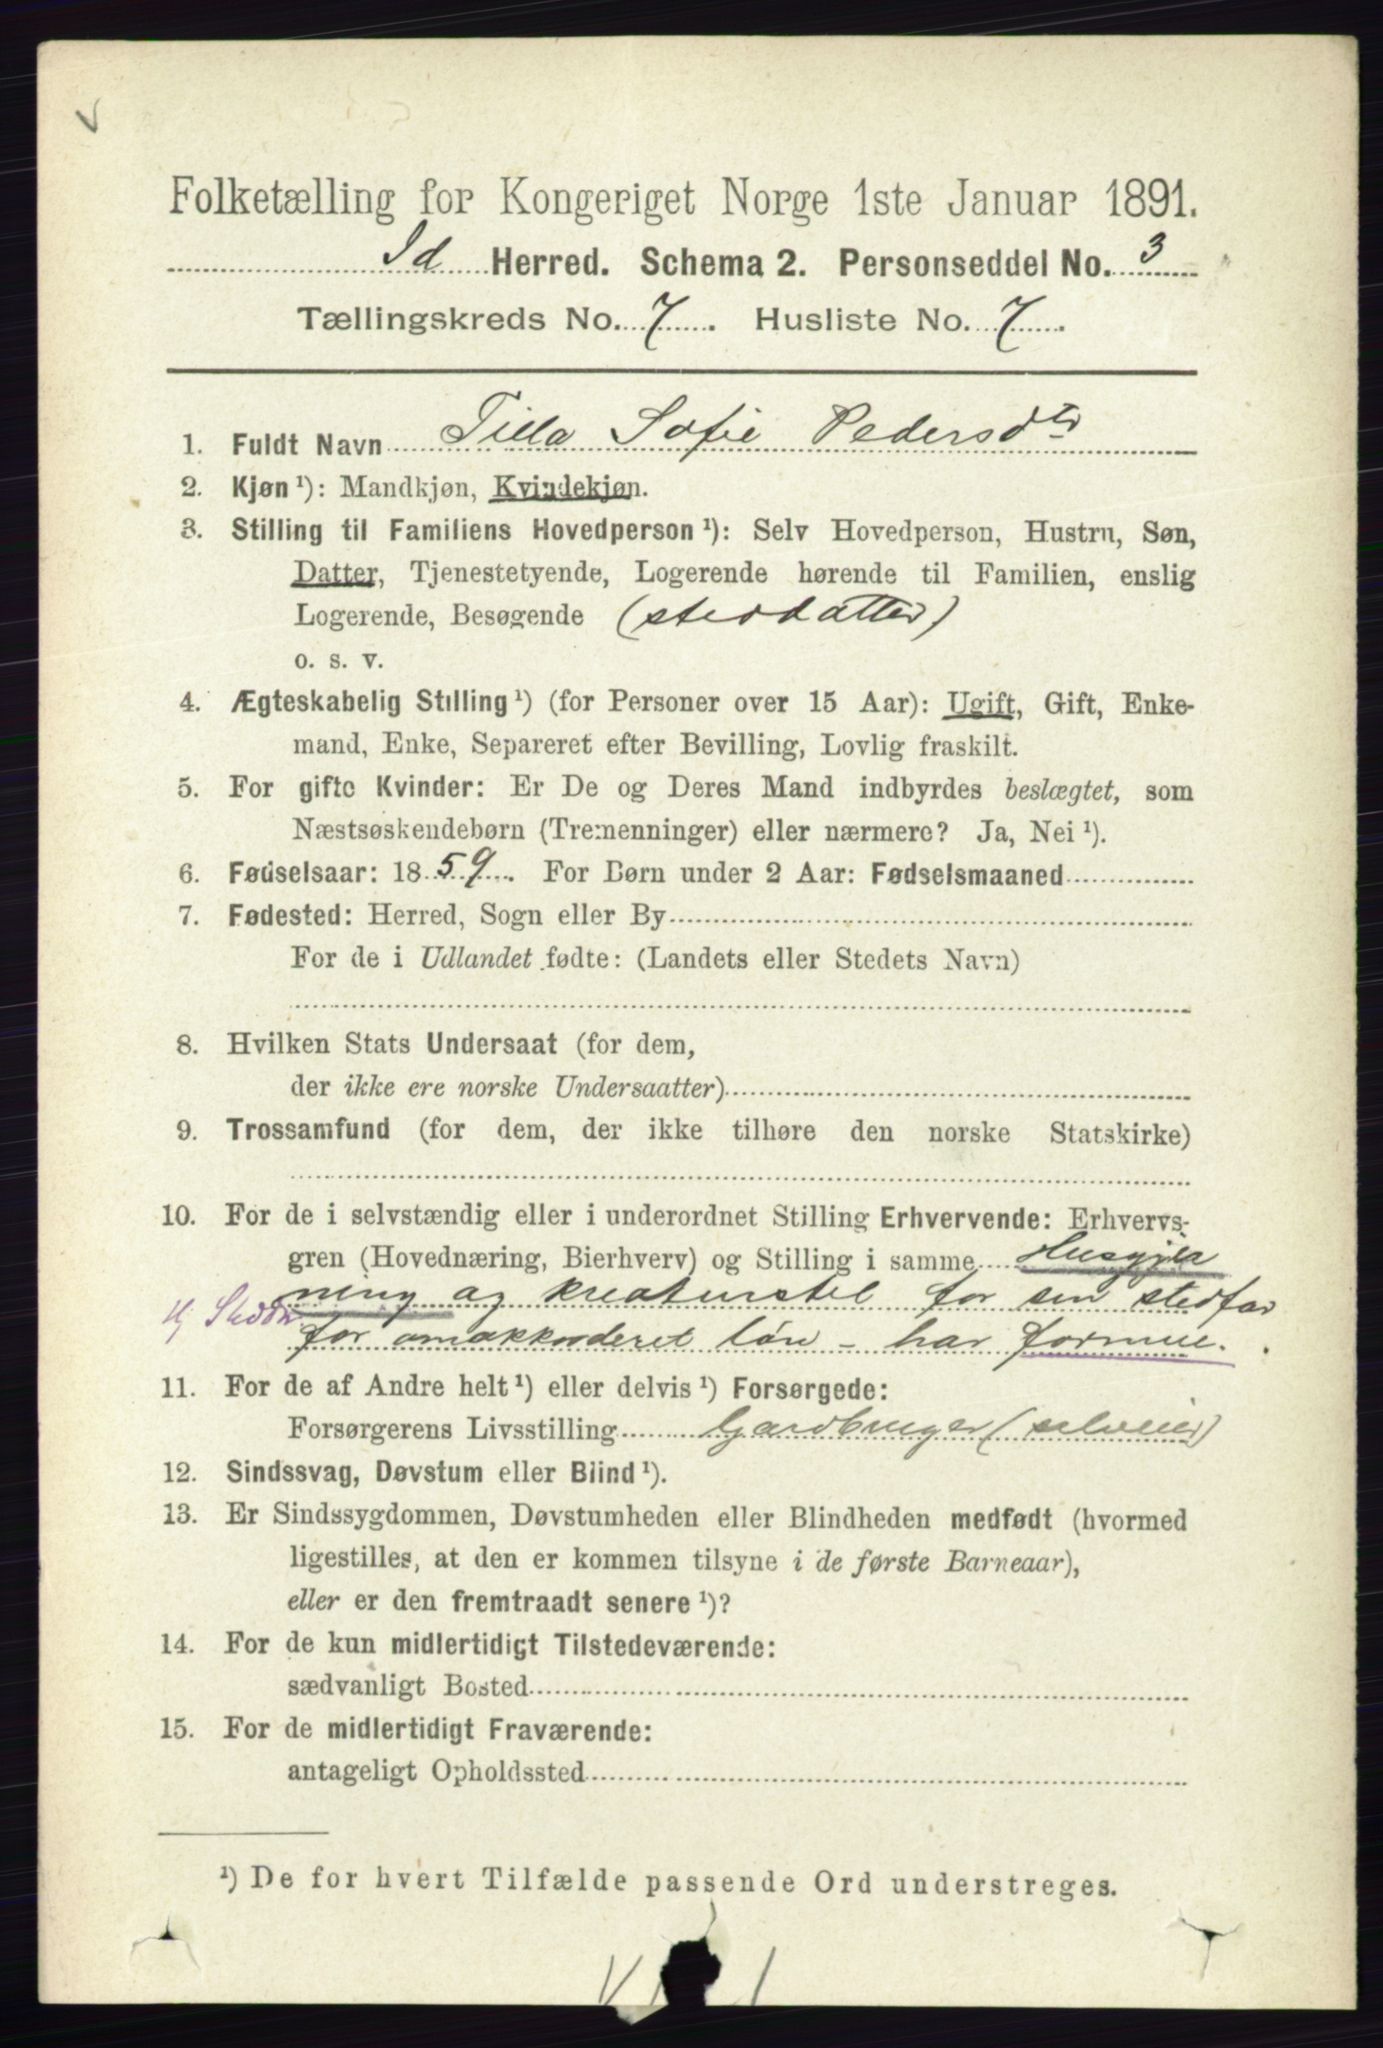 Folketælling for Kongeriget Norge 1ste Januar 1891.
Id Herred. Schema 2. Personseddel No. 3
Tællingskreds No. 7. Husliste No. 7.
1. Fuldt Navn Tilla Sofie Pedersdtr
2. Kjøn ¹): Mandkjøn, Kvindekjøn.
3. Stilling til Familiens Hovedperson ¹): Selv Hovedperson, Hustru, Søn,
Datter, Tjenestetyende, Logerende hørende til Familien, enslig
Logerende, Besøgende (steddatter)
o. s. v.
4. Ægteskabelig Stilling ¹) (for Personer over 15 Aar): Ugift, Gift, Enke-
mand, Enke, Separeret efter Bevilling, Lovlig fraskilt.
5. For gifte Kvinder: Er De og Deres Mand indbyrdes beslægtet, som
Næstsøskendebørn (Tremenninger) eller nærmere? Ja, Nei ¹).
6. Fødselsaar: 1859. For Børn under 2 Aar: Fødselsmaaned
7. Fødested: Herred, Sogn eller By
For de i Udlandet fødte: (Landets eller Stedets Navn)
8. Hvilken Stats Undersaat (for dem,
der ikke ere norske Undersaatter)
9. Trossamfund (for dem, der ikke tilhøre den norske Statskirke)
10. For de i selvstændig eller i underordnet Stilling Erhvervende: Erhvervs-
gren (Hovednæring, Bierhverv) og Stilling i samme Husgjer
ning og kreaturstel for sin stedfar
for omakkorderet løn – har formue.
11. For de af Andre helt ¹) eller delvis ¹) Forsørgede:
Forsørgerens Livsstilling Gardbruger (selveier)
12. Sindssvag, Døvstum eller Blind ¹).
13. Er Sindssygdommen, Døvstumheden eller Blindheden medfødt (hvormed
ligestilles, at den er kommen tilsyne i de første Barneaar),
eller er den fremtraadt senere ¹)?
14. For de kun midlertidigt Tilstedeværende:
sædvanligt Bosted
15. For de midlertidigt Fraværende:
antageligt Opholdssted
¹) De for hvert Tilfælde passende Ord understreges.